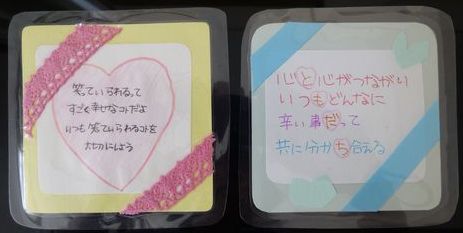 笑っていられるって
すごく幸せなコトだよ
いつも笑っていられるコトを
大切にしよう
心と心がつながい
いつもどんなに
辛い事だって
共に分かち合える